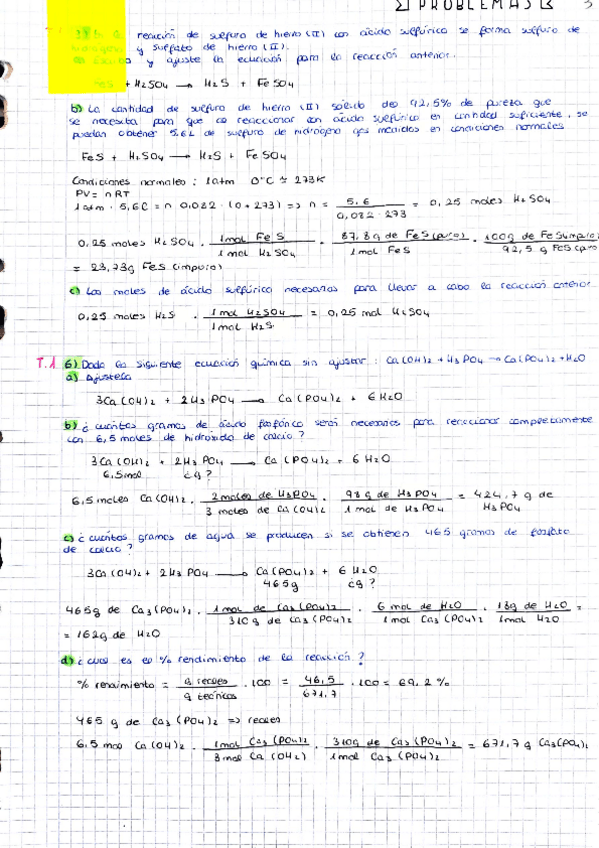 PROBLEMAS 3
reacción de sulfuro de hierro (II) con ácido sulfúrico se forma sulfuro de
hidrógeno y sulfato de hierro (II).
y ajuste la ecuación para la reacción anterior.
FeS + H2SO4 → H2S + FeSO4
b) La cantidad de sulfuro de hierro (II) sólido del 92,5% de pureza que
se necesita para que al reaccionar con ácido sulfúrico en cantidad suficiente, se
puedan obtener 5.6L de sulfuro de hidrógeno gas medidos en condiciones normales
FeS + H2SO4 → H2S + FeSO4
Condiciones normales: 1atm 0°C ≈ 273K
PV = nRT
1atm · 5,6 = n 0,082 · (0+273) => n = 5.6 / 0,082 · 273 = 0,25 moles H2SO4
0,25 moles H2SO4 · 1mol FeS / 1 mol H2SO4 · 87.8g de FeS (puro) / 1mol FeS · 100g de FeS impuro / 92,5 g FeS (puro)
= 23,73g FeS (impuro)
c) Los moles de ácido sulfúrico necesarios para llevar a cabo la reacción anterior
0,25 moles H2S · 1mol H2SO4 / 1mol H2S = 0,25 mol H2SO4
T.1 6) Dada la siguiente ecuación química sin ajustar: Ca(OH)2 + H3PO4 → Ca(PO4)2 + H2O
a) Ajústela
3Ca(OH)2 + 2H3PO4 → Ca(PO4)2 + 6H2O
b) ¿cuántos gramos de ácido fosfórico serán necesarios para reaccionar completamente
con 6,5 moles de hidróxido de calcio?
3Ca(OH)2 + 2H3PO4 → Ca(PO4)2 + 6H2O
6,5mol ¿g?
6,5 moles Ca(OH)2 · 2 moles de H3PO4 / 3 moles de Ca(OH)2 · 98g de H3PO4 / 1 mol de H3PO4 = 424,7 g de
H3PO4
c) ¿cuántos gramos de agua se producen si se obtienen 465 gramos de fosfato
de calcio?
3Ca(OH)2 + 2H3PO4 → Ca(PO4)2 + 6H2O
465g ¿g?
465g de Ca3(PO4)2 · 1mol de Ca3(PO4)2 / 310g de Ca3(PO4)2 · 6 mol de H2O / 1mol Ca3(PO4)2 · 18g de H2O / 1mol H2O =
= 162g de H2O
d) ¿cual es el % rendimiento de la reacción?
% rendimiento = g reales / g teóricos · 100 = 46,5 / 671,7 · 100 = 69,2%
465 g de Ca3(PO4)2 => reales
6,5 mol Ca(OH)2 · 1mol Ca3(PO4)2 / 3mol Ca(OH2) · 310g de Ca3(PO4)2 / 1mol Ca3(PO4)2 = 671,7g Ca3(PO4)2